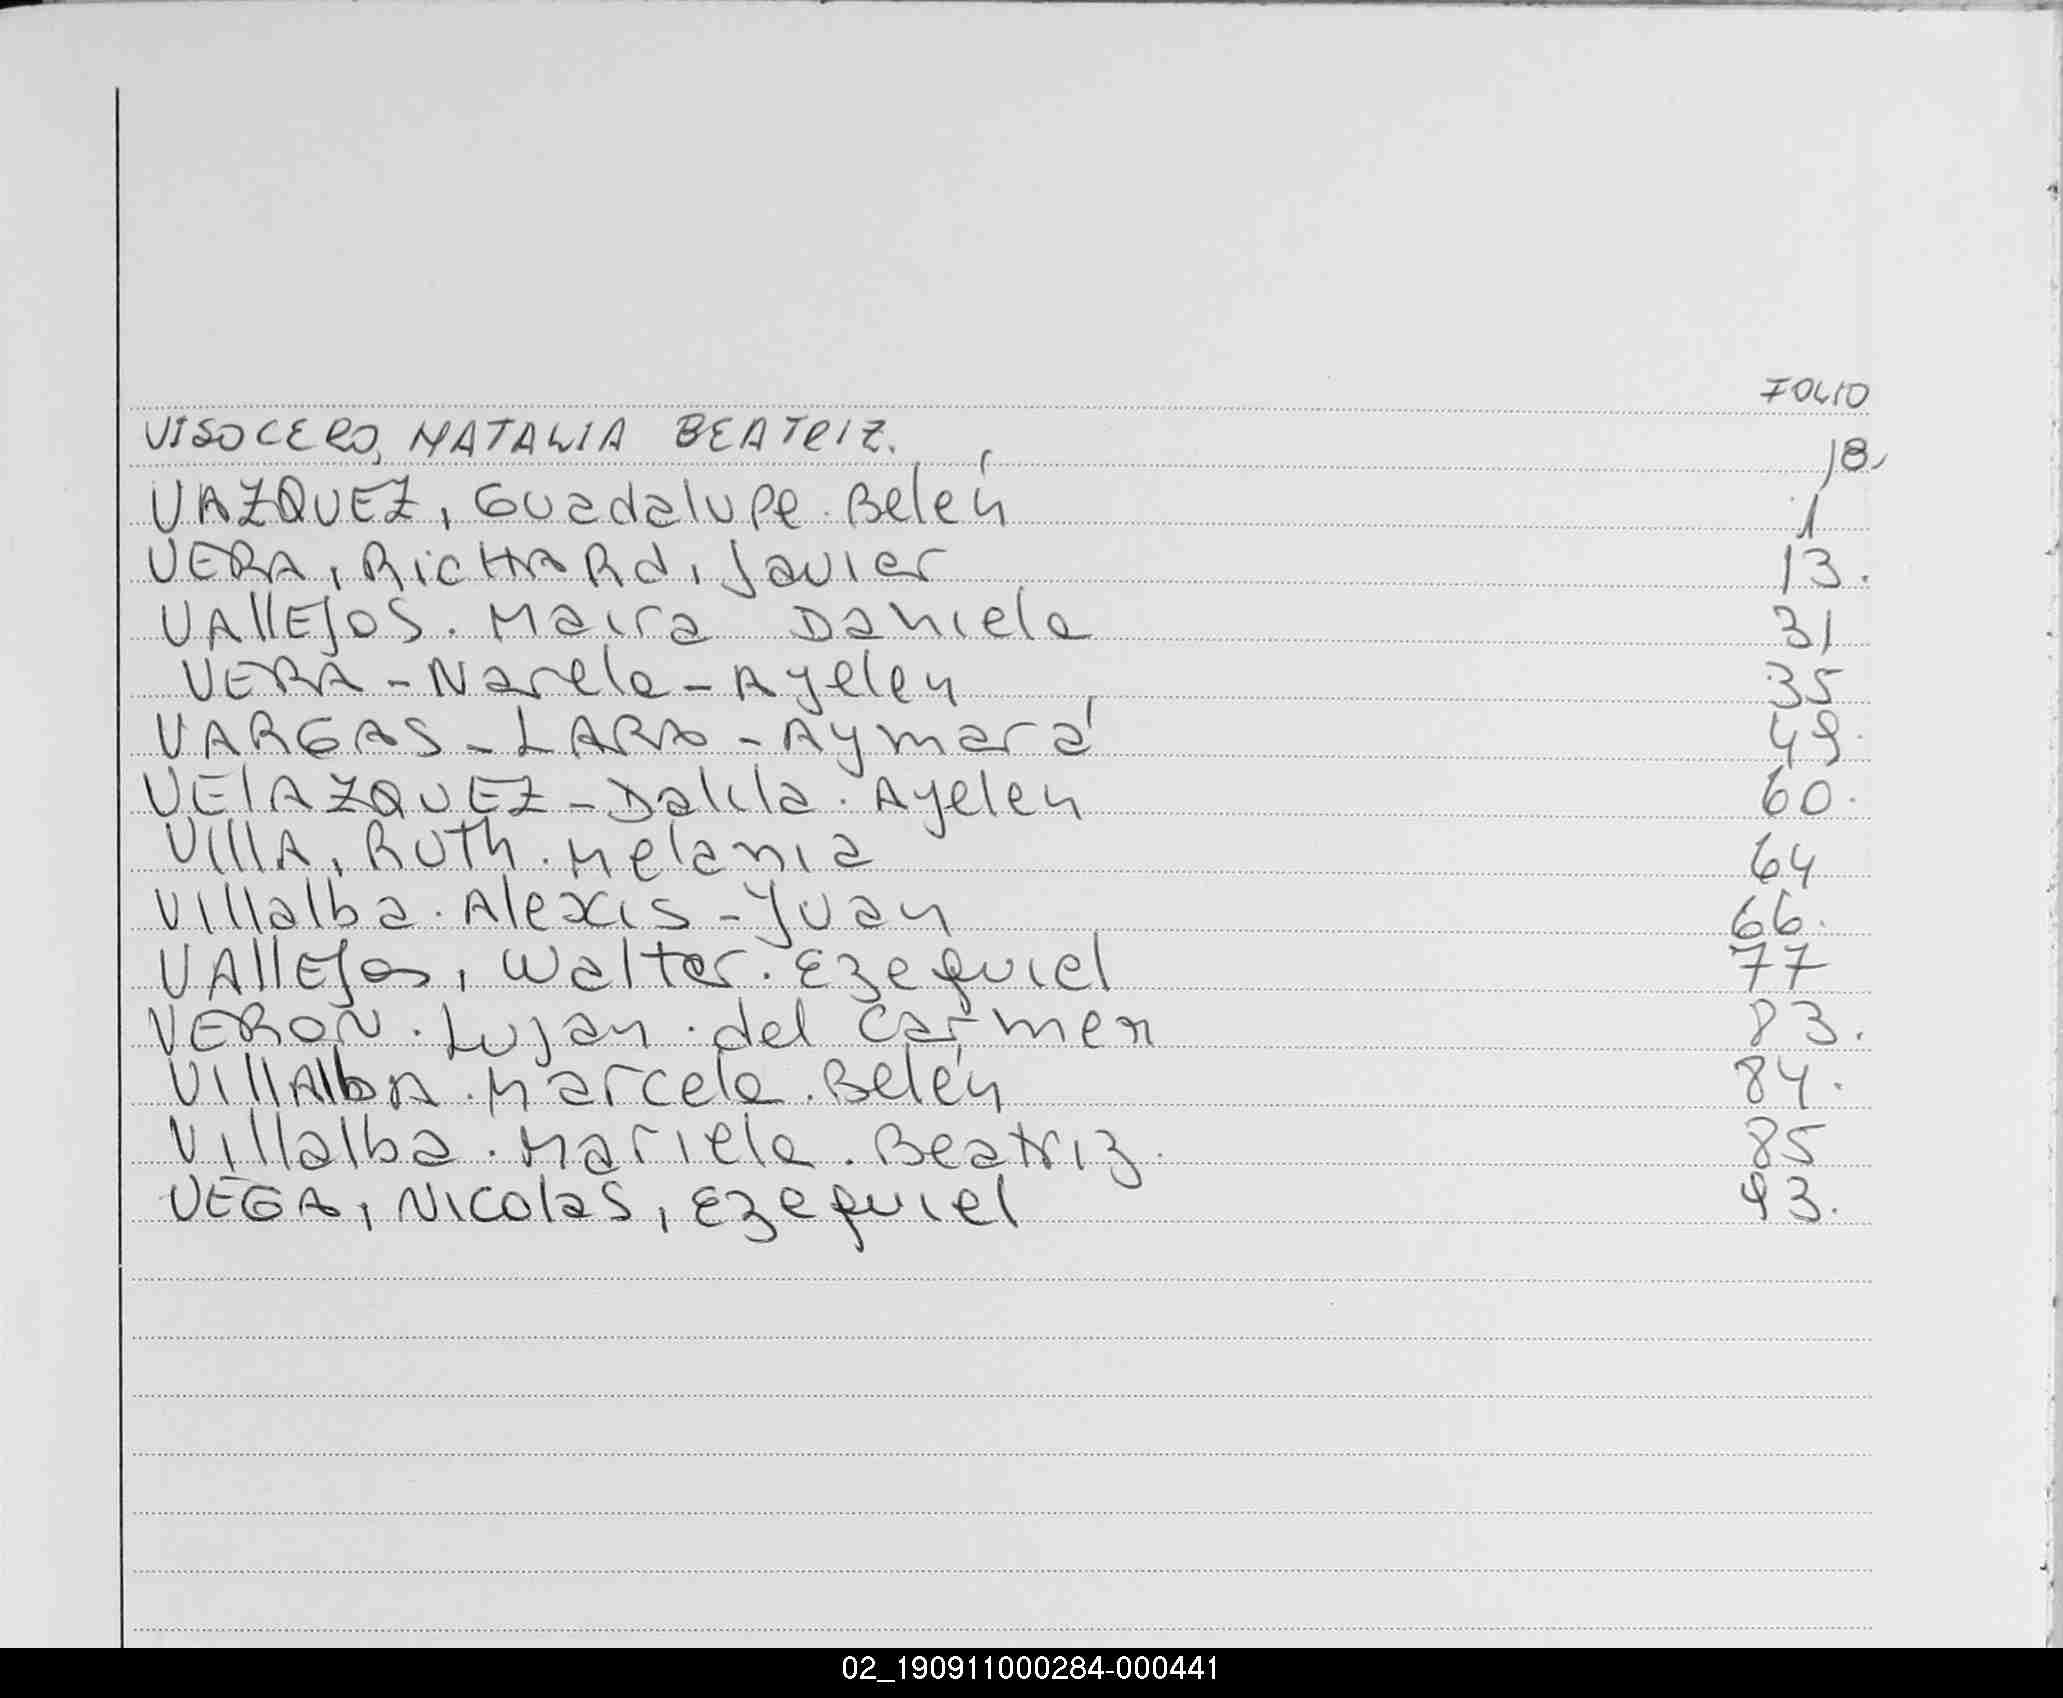 FOLIO
VISOCERO, NATALIA BEATRIZ. 18,
VAZQUEZ, Guadalupe. Belén 1
VERA, RicHARd, Javier 13.
VAllEJOS. Maira Daniela 31
VERA - Narela - Ayelen 35
VARGAS - LARA - Aymará 49.
VElAZQUEZ - Dalila. Ayelen 60.
VIllA, RUTh. Melania 64
Villalba. Alexis - Juan 66.
VAllEJos, Walter. Ezequiel 77
VERON. Lujan. del Carmen 83.
VIllAlbA. Marcela. Belén 84.
Villalba. Mariela. Beatriz. 85
VEGA, NICOlaS, Ezequiel 93.
02_190911000284-000441